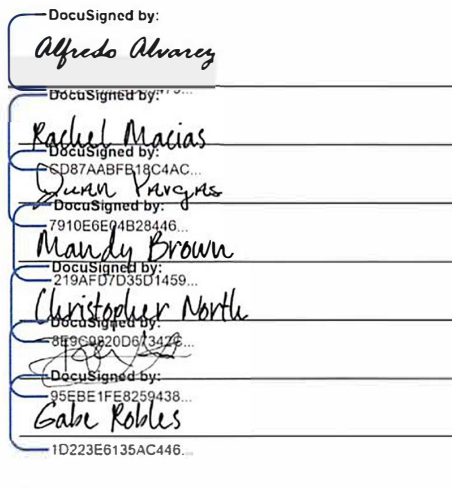 DocuSigned by:
Alfredo Alvarez
DocuSigned by:
Rachel Macias
DocuSigned by:
CD87AABFB18C4AC...
Juan Vargas
DocuSigned by:
7910E6E04B28446...
Mandy Brown
DocuSigned by:
219AFD7D35D1459...
Christopher North
DocuSigned by:
DocuSigned by:
95EBE1FE8259438...
Gabe Robles
1D223E6135AC446...